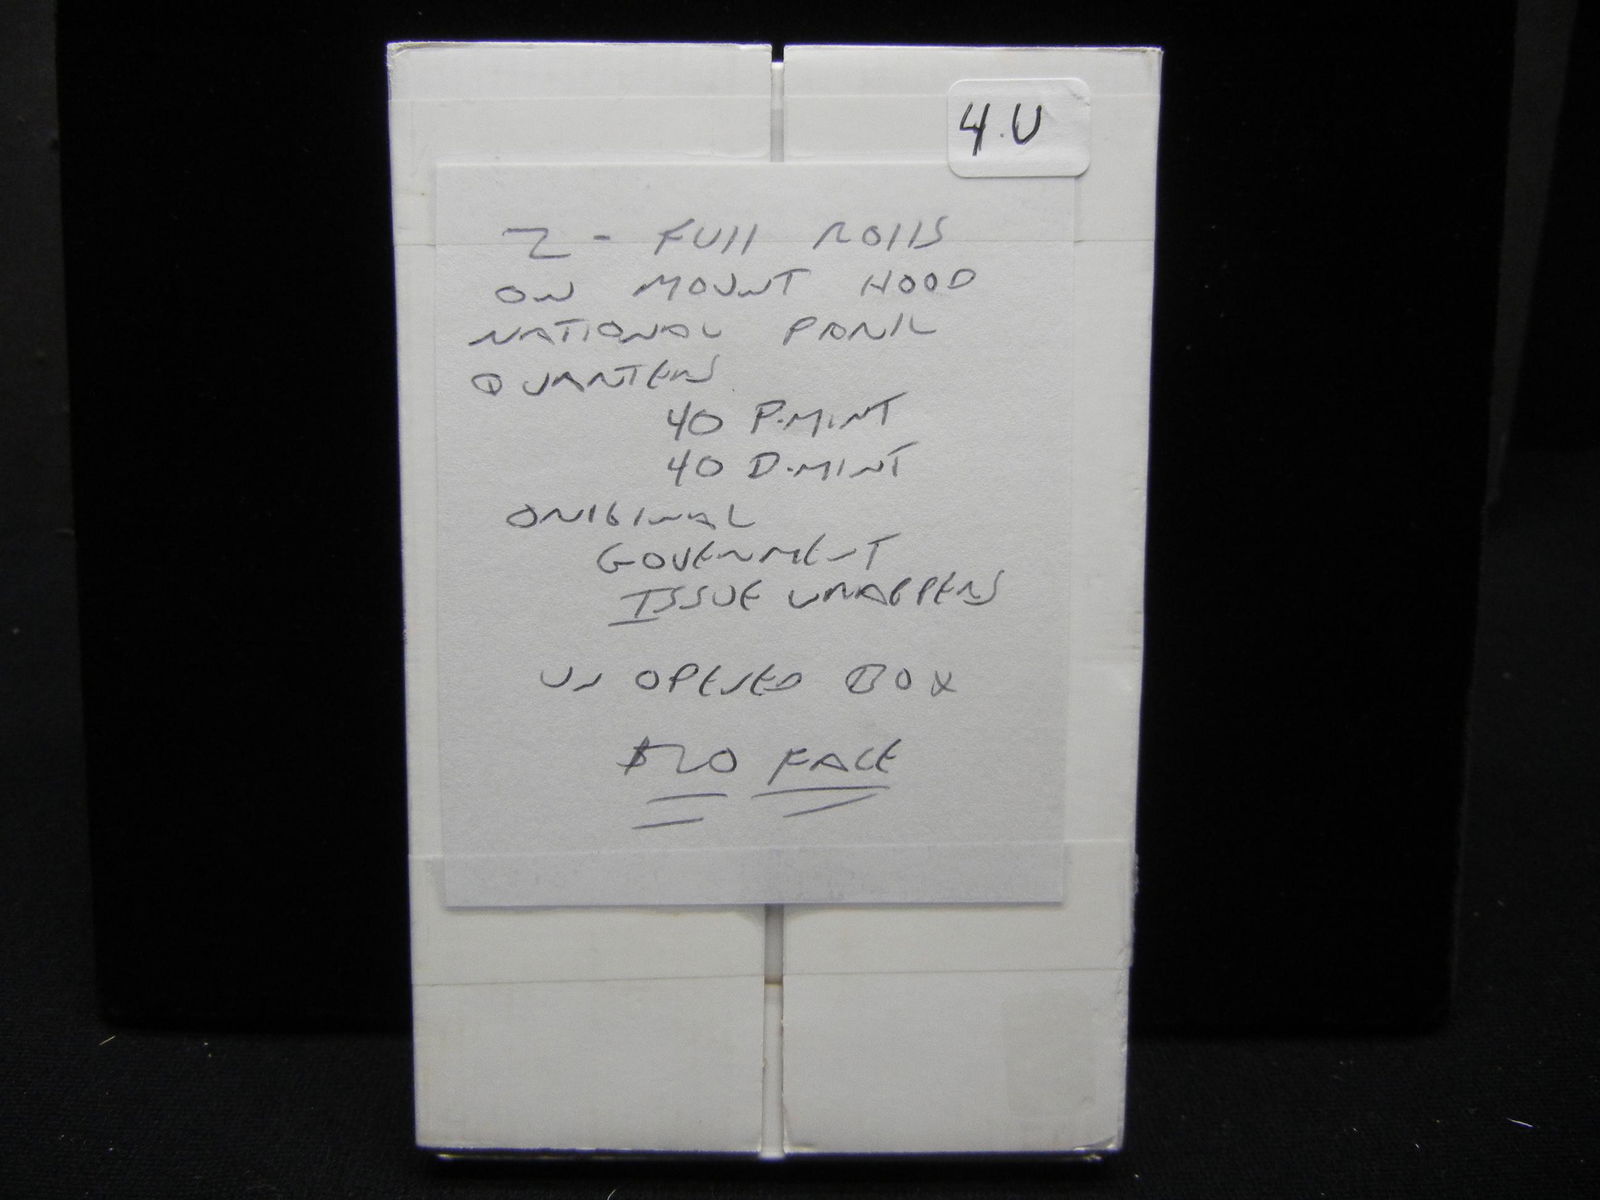 4.U
2 - FULL ROLLS
ON MOUNT HOOD
NATIONAL PARK
QUARTERS
40 P.MINT
40 D.MINT
ORIGINAL
GOVERNMENT
ISSUE WRAPPERS
UN OPENED BOX
$20 FACE